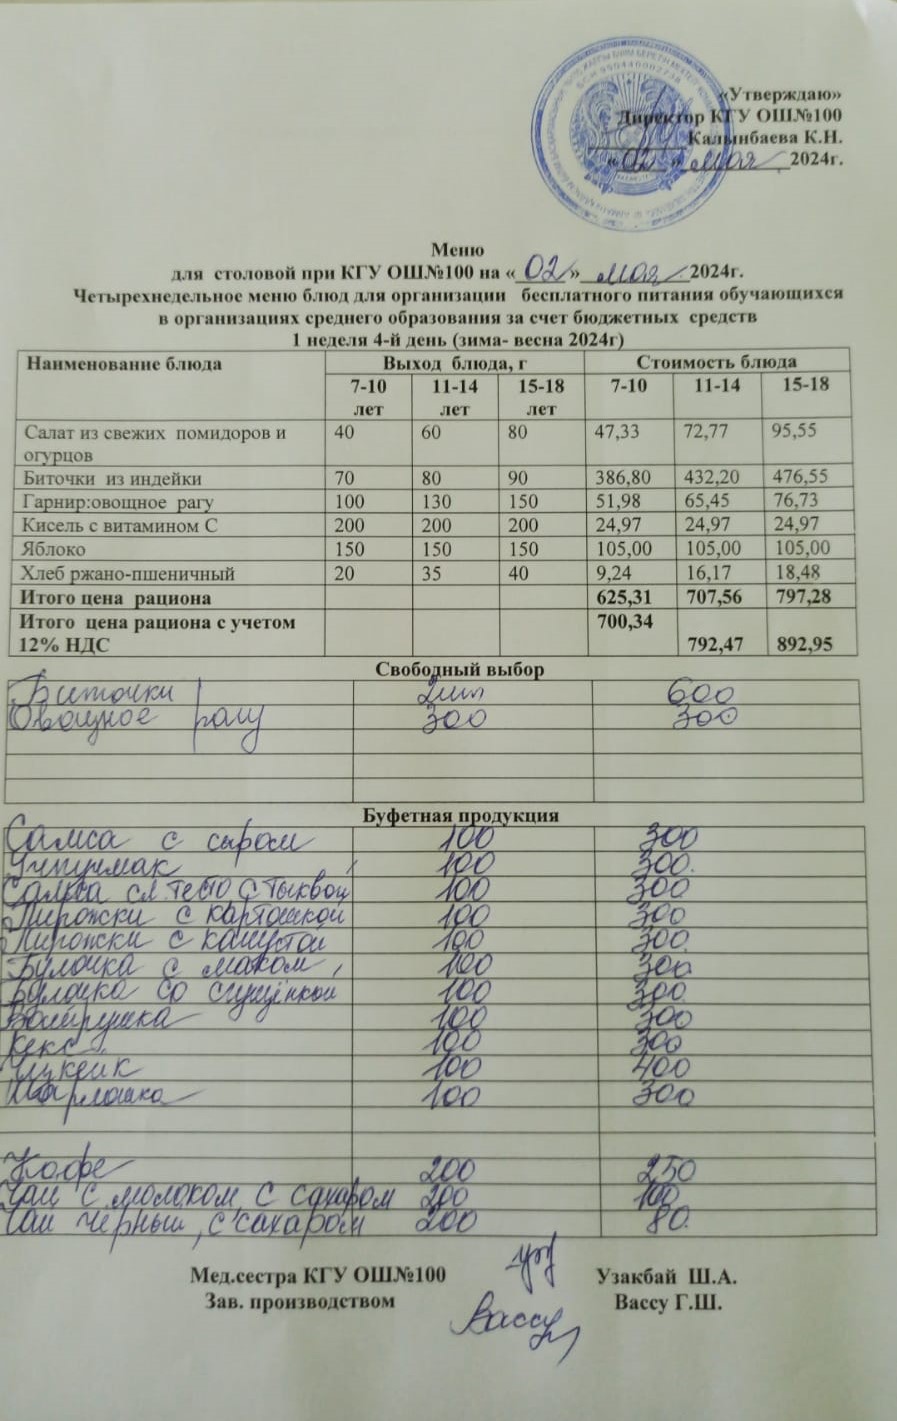 «Утверждаю»
Директор КГУ ОШ№100
Калынбаева К.Н.
«02» мая 2024г.
Меню
для столовой при КГУ ОШ№100 на «02» мая 2024г.
Четырехнедельное меню блюд для организации бесплатного питания обучающихся
в организациях среднего образования за счет бюджетных средств
1 неделя 4-й день (зима- весна 2024г)
Наименование блюда Выход блюда, г Стоимость блюда
7-10 лет 11-14 лет 15-18 лет 7-10 11-14 15-18
Салат из свежих помидоров и огурцов 40 60 80 47,33 72,77 95,55
Биточки из индейки 70 80 90 386,80 432,20 476,55
Гарнир:овощное рагу 100 130 150 51,98 65,45 76,73
Кисель с витамином С 200 200 200 24,97 24,97 24,97
Яблоко 150 150 150 105,00 105,00 105,00
Хлеб ржано-пшеничный 20 35 40 9,24 16,17 18,48
Итого цена рациона 625,31 707,56 797,28
Итого цена рациона с учетом 12% НДС 700,34 792,47 892,95
Свободный выбор
Биточки 2шт 600
Овощное рагу 300 300
Буфетная продукция
Самса с сыром 100 300
Учпучмак 100 300
Самса сл тесто с тыквой 100 300
Пирожки с картошкой 100 300
Пирожки с капустой 100 300
Булочка с маком 100 300
Булочка со сгущёнкой 100 300
Ватрушка 100 300
Кекс 100 300
Чизкейк 100 400
100 300
Кофе 200 250
Чай с молоком с сахаром 200 100
Чай чёрный, с сахаром 200 80
Мед.сестра КГУ ОШ№100 Узакбай Ш.А.
Зав. производством Вассу Вассу Г.Ш.